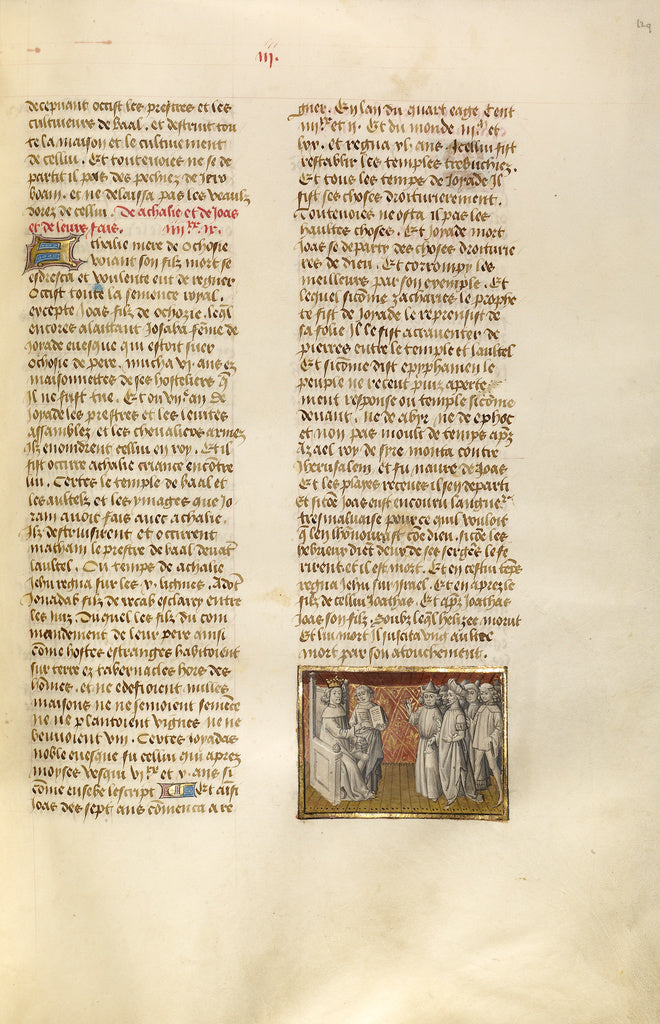 129
iij.
decepuant occist les prestres et les
cultiueurs de baal. et destruit tou
te la maison et le cultiuement
de cellui. Et toutenoies ne se de
partit il pas des pechiez de iero
boam. et ne delaissa pas les veaulz
dorez de cellui. De achalie et de Joas
et de leurs fais.
Athalie mere de Ochosie
voiant son filz mort se
esdresca et voulente eut de regner
Occist toute la semence royal.
excepte Joas filz de ochozie. leql
encores alaittant Josaba feme de
Joyade euesque qui estoit suer
Ochosie de pere. mucha vj. ans ez
maisonnettes de ses hosteliers q
Il ne fust tue. Et ou vije an de
Joyade les prestres et les leuites
assamblez et les cheualiers armez
Ilz enoindrent cellui en roy. Et il
fist occirre achalie criance encotre
lui. Certes le temple de baal et
les aultelz et les ymages que Jo
ram auoit fais auec achalie.
Ilz destruisirent et occirent
matham le prestre de baal deuat
laultel. Ou temps de achalie
Jehu regna sur les x. lignies. Adoc
Jonadab filz de recab esclarcy entre
les iuiz. Duquel les filz du com
mandement de leur pere ainsi
come hostes estranges habitoient
sur terre ez tabernacles hors des
bonnes. et ne edefioient nulles
maisons ne ne semoient semece
ne ne plantoient vignes ne ne
beuuoient vin. Certes Joyadas
noble euesque fu cellui qui aprez
moyses vesqui vj xx et x. ans si
come eusebe lescript Et aisi
Joas des sept ans comenca a re
gner. En lan du quart eage Cent
iiij xx et ij. Et du monde iijm et
lxv. et regna xl ans. Icellui fist
restablir les temples trebuchiez.
Et tous les temps de Joyade Il
fist ses choses droiturierement.
Toutenoies ne osta il pas les
haultes choses. Et Joyade mort
Joas se departy des choses droiturie
res de dieu. Et corrompy les
meilleurs par son exemple. Et
lequel sicome zacharies le prophe
te fist de Joyade le reprensist de
sa folie Il le fist acrauenter de
pierres entre le temple et laultel
Et sicome dist epyphanien le
peuple ne receut puiz aperte
ment response ou temple sicome
deuant. ne de abyr ne de ephot
et non pas moult de temps apz
Azael roy de syre monta contre
Iherusalem. et fu naure de Joas
Et les playes receues il sen departi
Et sicoe Joas eust encouru langueur
tresmaluaise pour ce quil vouloit
q len lhonourast coe dieu. sicoe les
hebrieux diet deux de ses serges le fe
rirent et il est mort. Et en cestui teps
regna Jehu sur israel. Et en aprez le
filz de cellui Joathas. Et apz Joathas
Joas son filz. Soubz leql helizee morut
Et lui mort Il suscita vng aultre
mort par son atouchement.